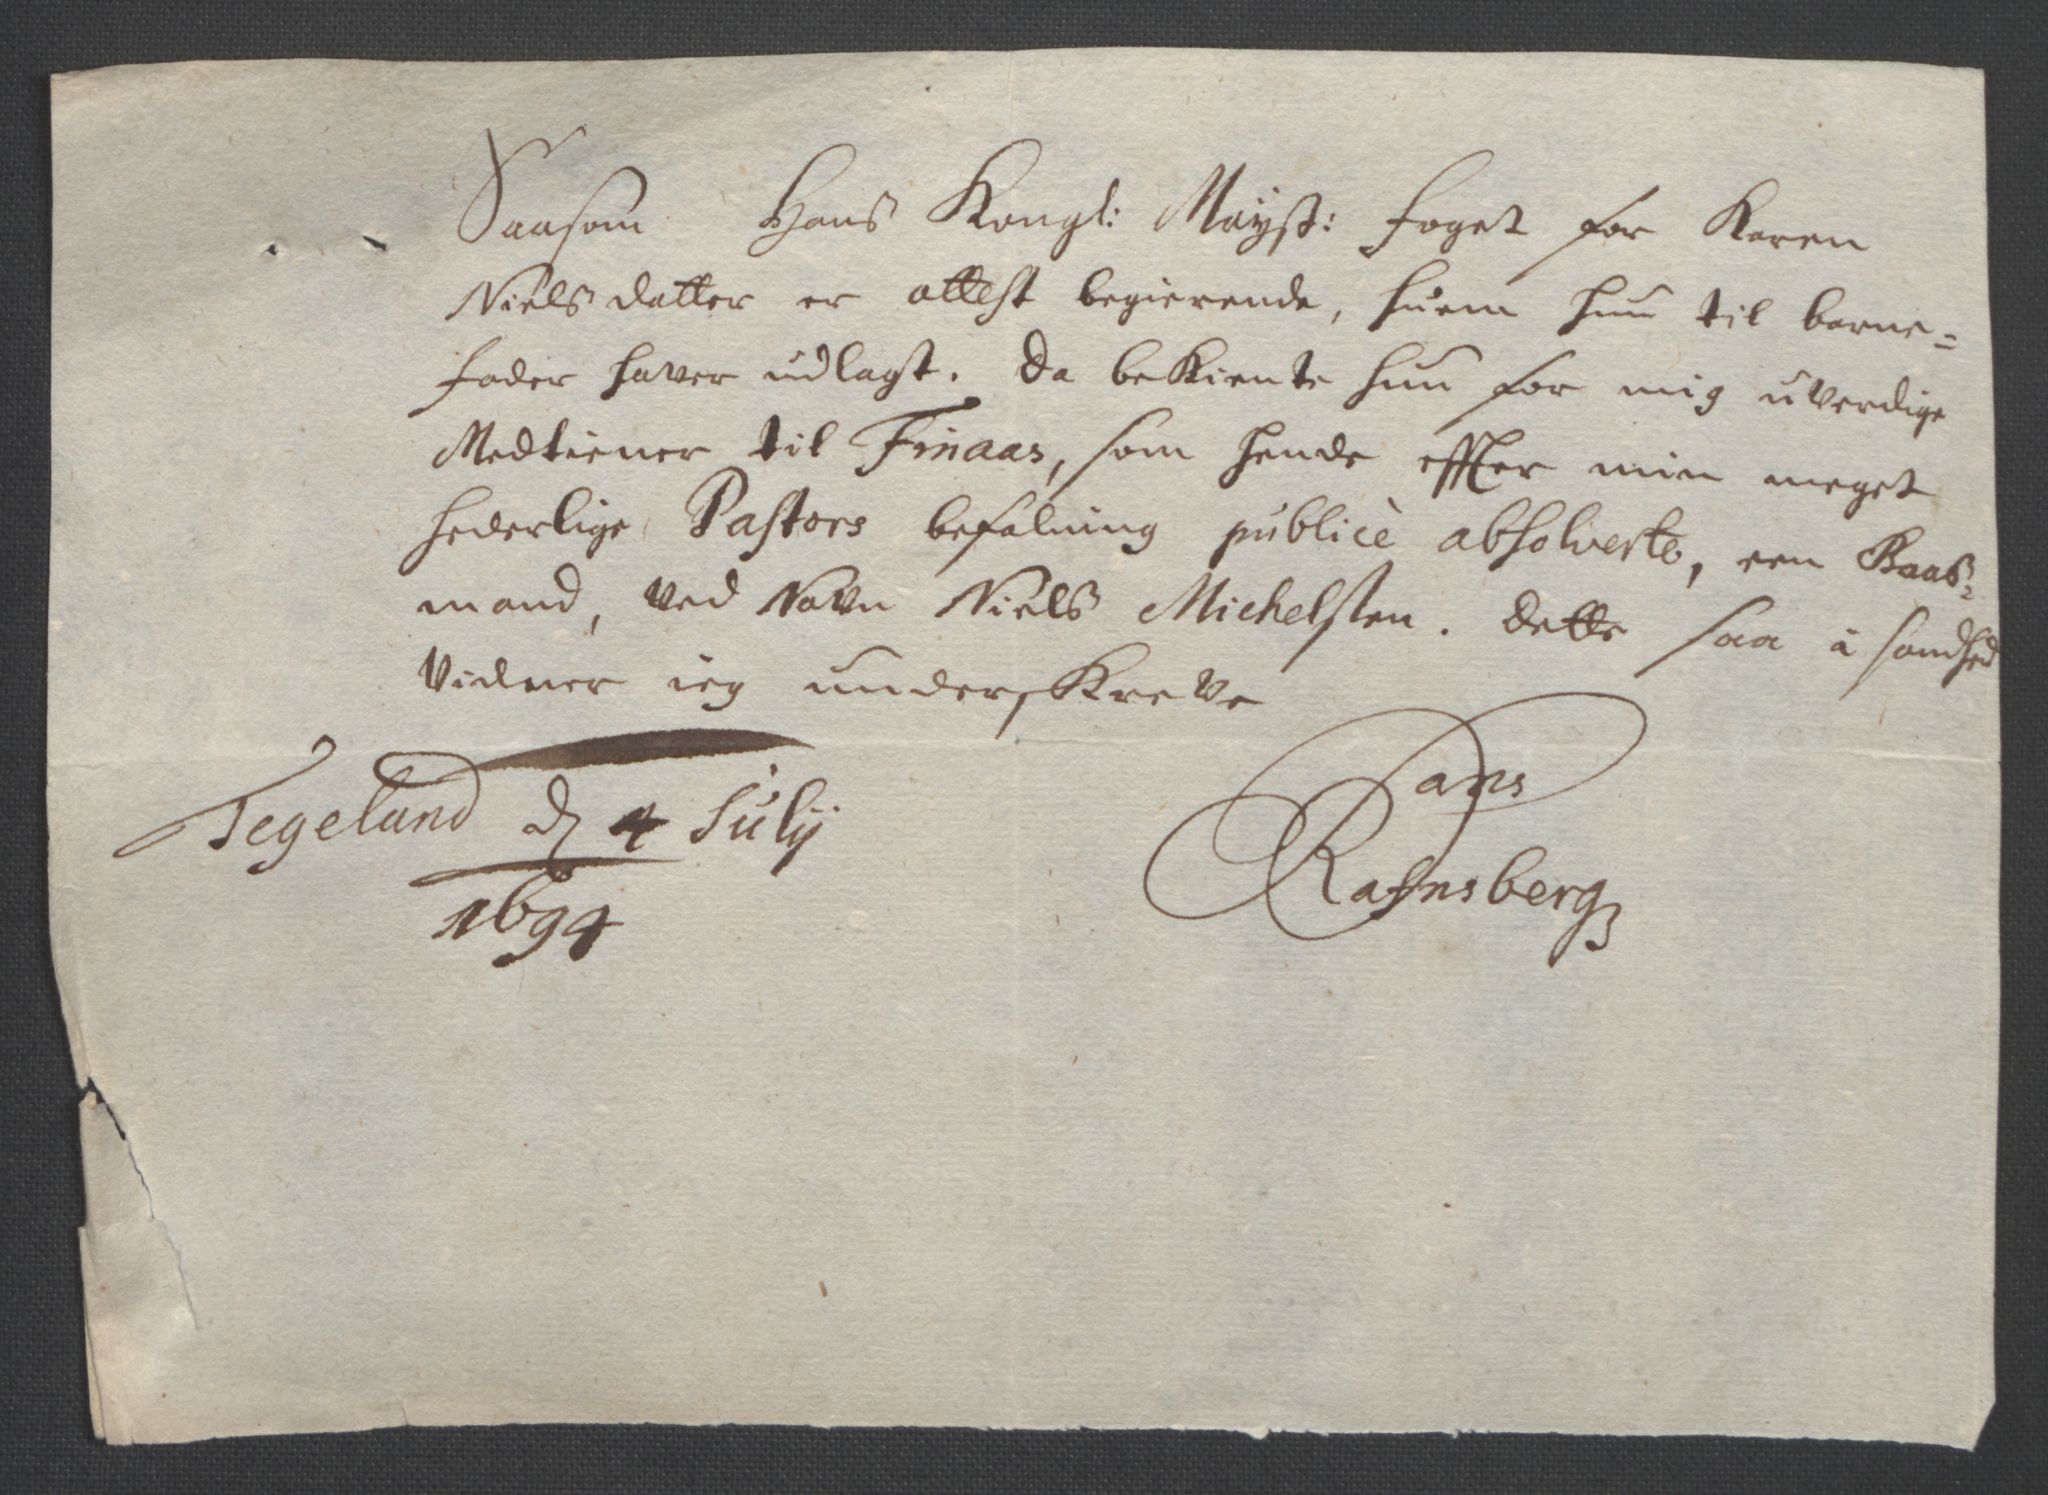 Saasom Hans Kongl: Mayst: foget for Karen
Nielsdatter er attest begierende, huem hun til barne=
fader haver udlagt. Da bekiente hun for mig uverdige
Medtiener til Finaas, som hende effter min meget
hederlige Pastors befalning publicè absolverte, een Baas=
mand, ved Navn Niels Michelsen. Dette saa i sandhed
vidner ieg underskreve
Tegeland d 4 Julij
1694
Hans
Rafnsberg